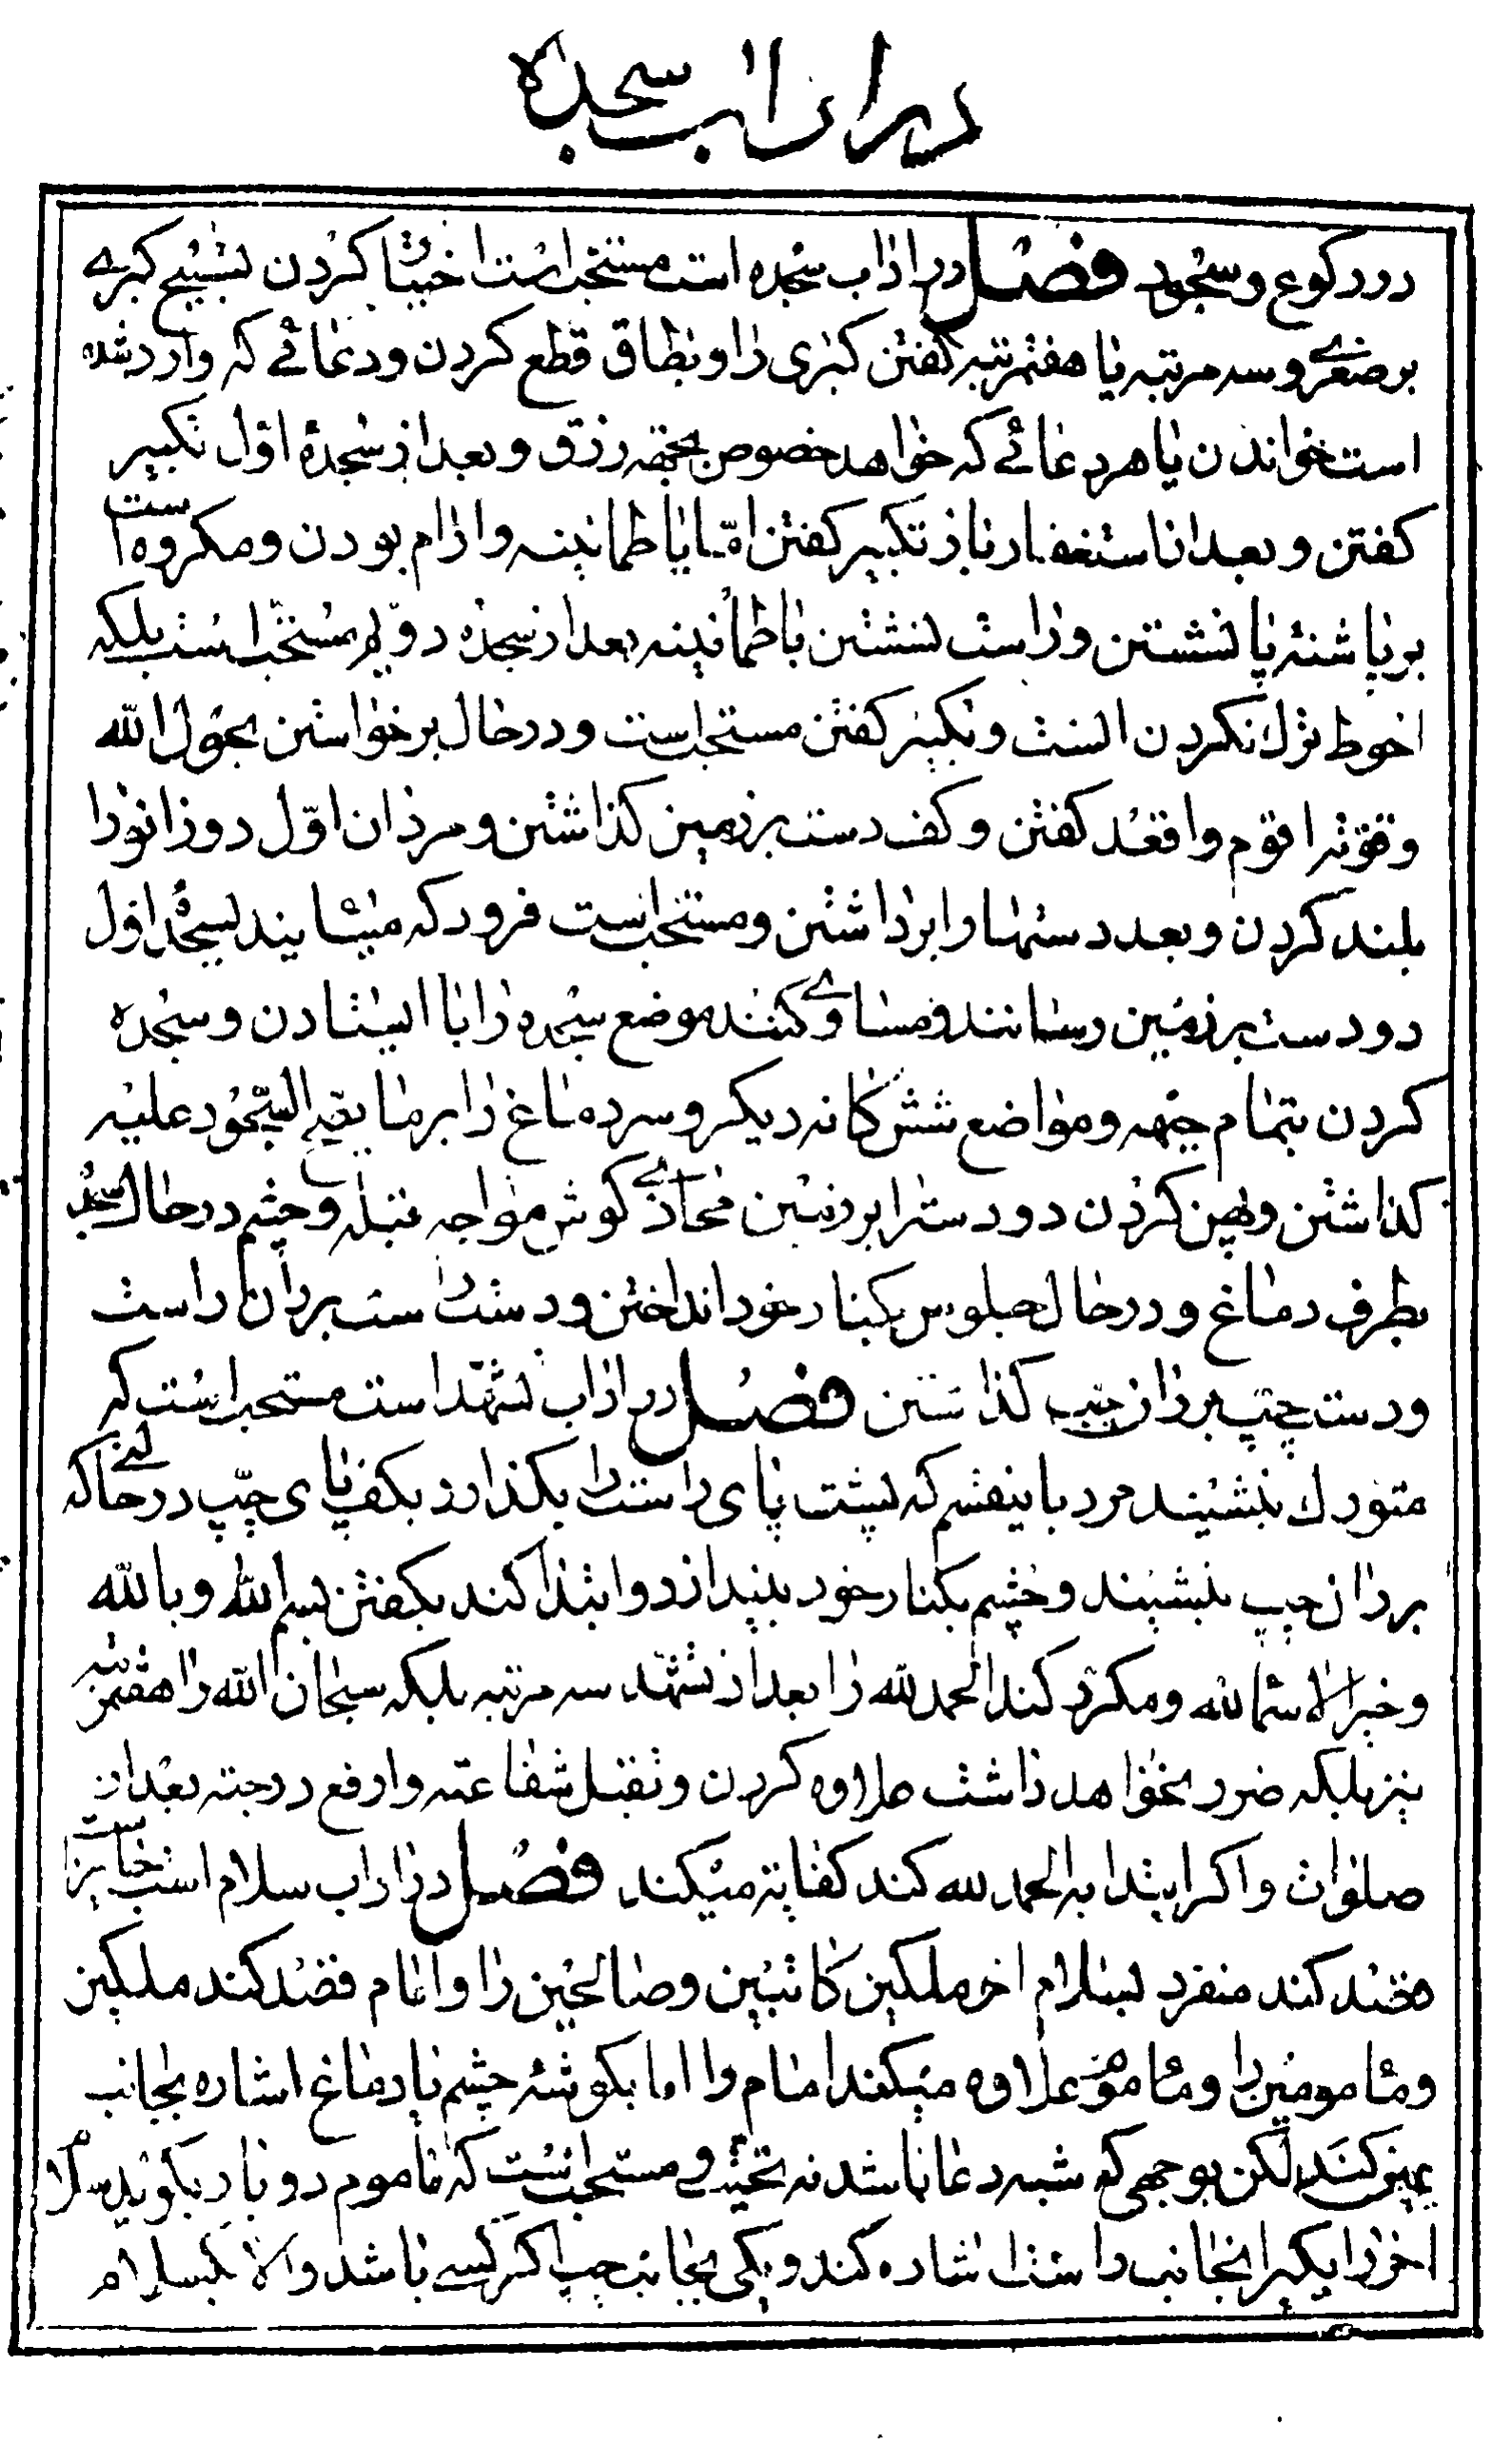 در اداب سجده
در رکوع و سجود فصل در اداب سجده است مستحب است اختیار کردن تسبیح کبری
بر صغری و سه مرتبه یا هفتمرتبه کفتن کبری را و بطاق قطع کردن و دعائی که وارد شده
است خواندن یا هر دعائی که خواهد خصوص بجهة رزق و بعد از سجدهٔ اوّل تکبیر
کفتن و بعد از استغفار باز تکبیر کفتن امّا با طمانینه و ارام بودن و مکروه است
بر پاشنهٔ پا نشستن و راست نشستن با طمأنینه بعد از سجدهٔ دویم مستحب است بلکه
احوط ترك نکردن انست و تکبیر کفتن مستحب است و در حال برخواستن بحول الله
و قوّته اقوم و اقعد کفتن و کف دست بر زمین کذاشتن و مردان اوّل دو زانو را
بلند کردن و بعد دستها را برداشتن و مستحب است فرود که میایند بسجدهٔ اول
دو دست بر زمین رسانند و مساوی کنند موضع سجده را با ایستادن و سجده
کردن بتمام جبهه و مواضع ششکانه دیکر و سر دماغ را بر ما یصح السّجود علیه
کذاشتن و پهن کردن دو دسترا بر زمین محاذی کوش مواجه قبله و چشم در حال سجده
بطرف دماغ و در حال جلوس بکنار خود انداختن و دست راست بر ران راست
و دست چپ بر ران چپ کذاشتن فصل در اداب تشهّد است مستحب است که
متورك بنشیند مرد باینقسم که پشت پای راست را بکذارد بکف پای چپ در حالتی که
بر ران چپ بنشیند و چشم بکنار خود بیندازد و ابتدا کند بکفتن بسم الله و بالله
و خیر الاسماء لله و مکرّر کند الحمد لله را بعد از تشهّد سه مرتبه بلکه سبحان الله را هفتمرتبه
نیز بلکه ضرر نخواهد داشت علاوه کردن و تقبل شفاعته و ارفع درجته بعد از
صلوات و اکر ابتدا به الحمد لله کند کفایة میکند فصل در اداب سلام است
قصد کند منفرد بسلام اخر ملکین کاتبین و صالحین را و امام قصد کند ملکین
و مامومین را و ماموم علاوه میکند امام را اما بکوشهٔ چشم یا دماغ اشاره بجانب
یمین کنند لکن بوجهی که شبه دعا باشد نه تحیّت و مستحب است که ماموم دو بار بکوید سلام
اخر را یکی را بجانب راست اشاره کند و یکی بجانب چپ اکر کسی باشد والا بسلام